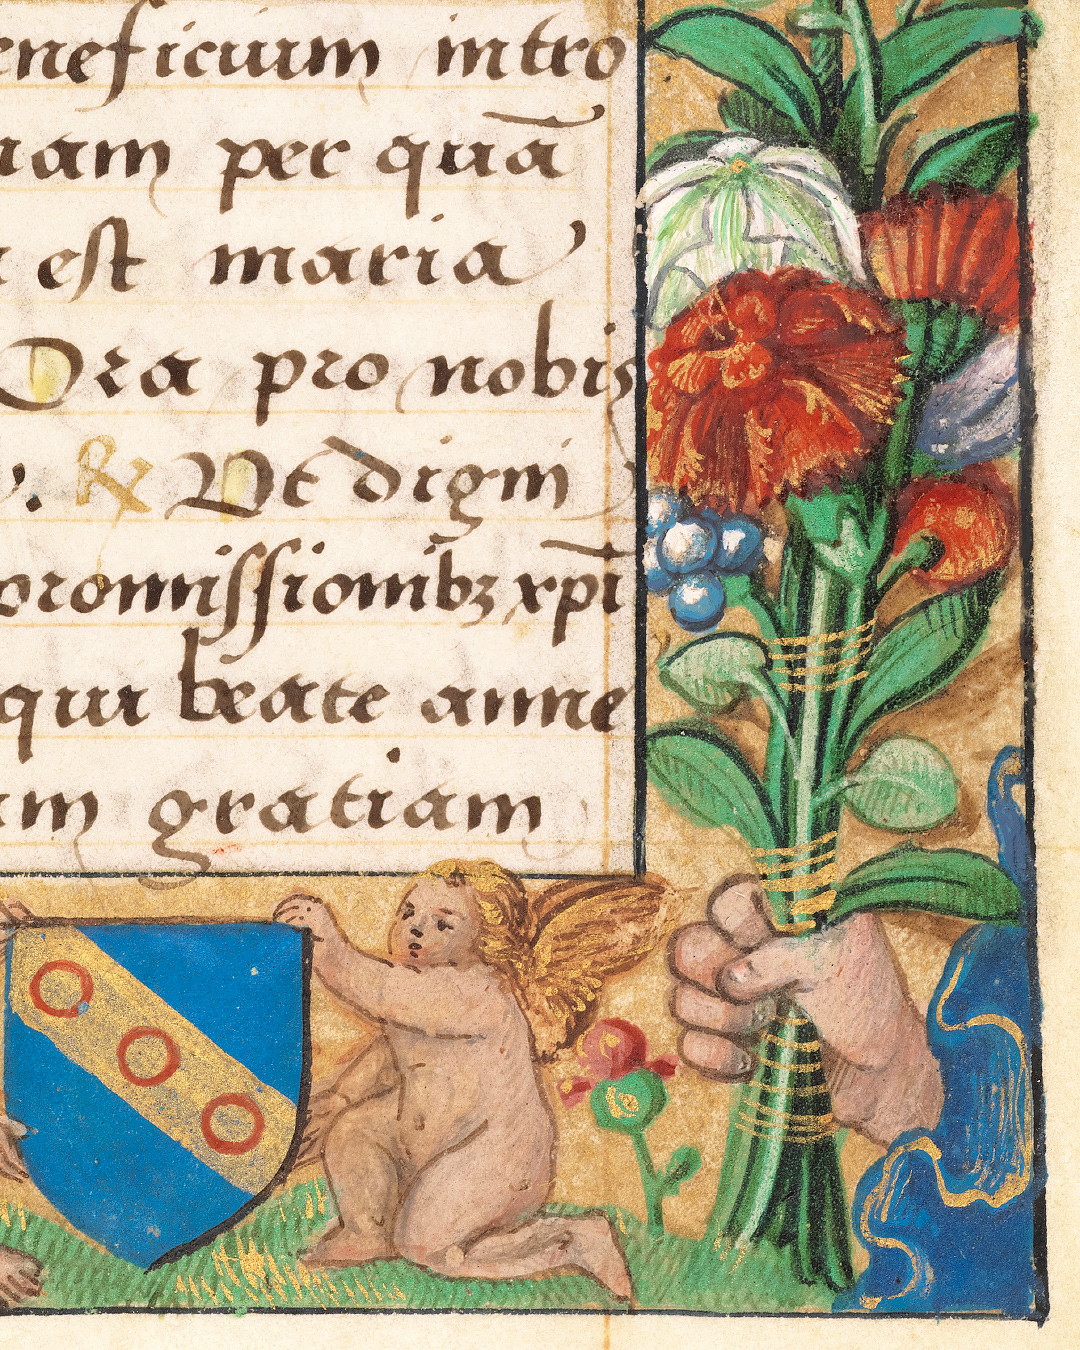 eneficium intro
nam per quā
est maria
Ora pro nobis
. ℟ Vt digni
promissionibꝫ xp̄i
qui beate anne
um gratiam